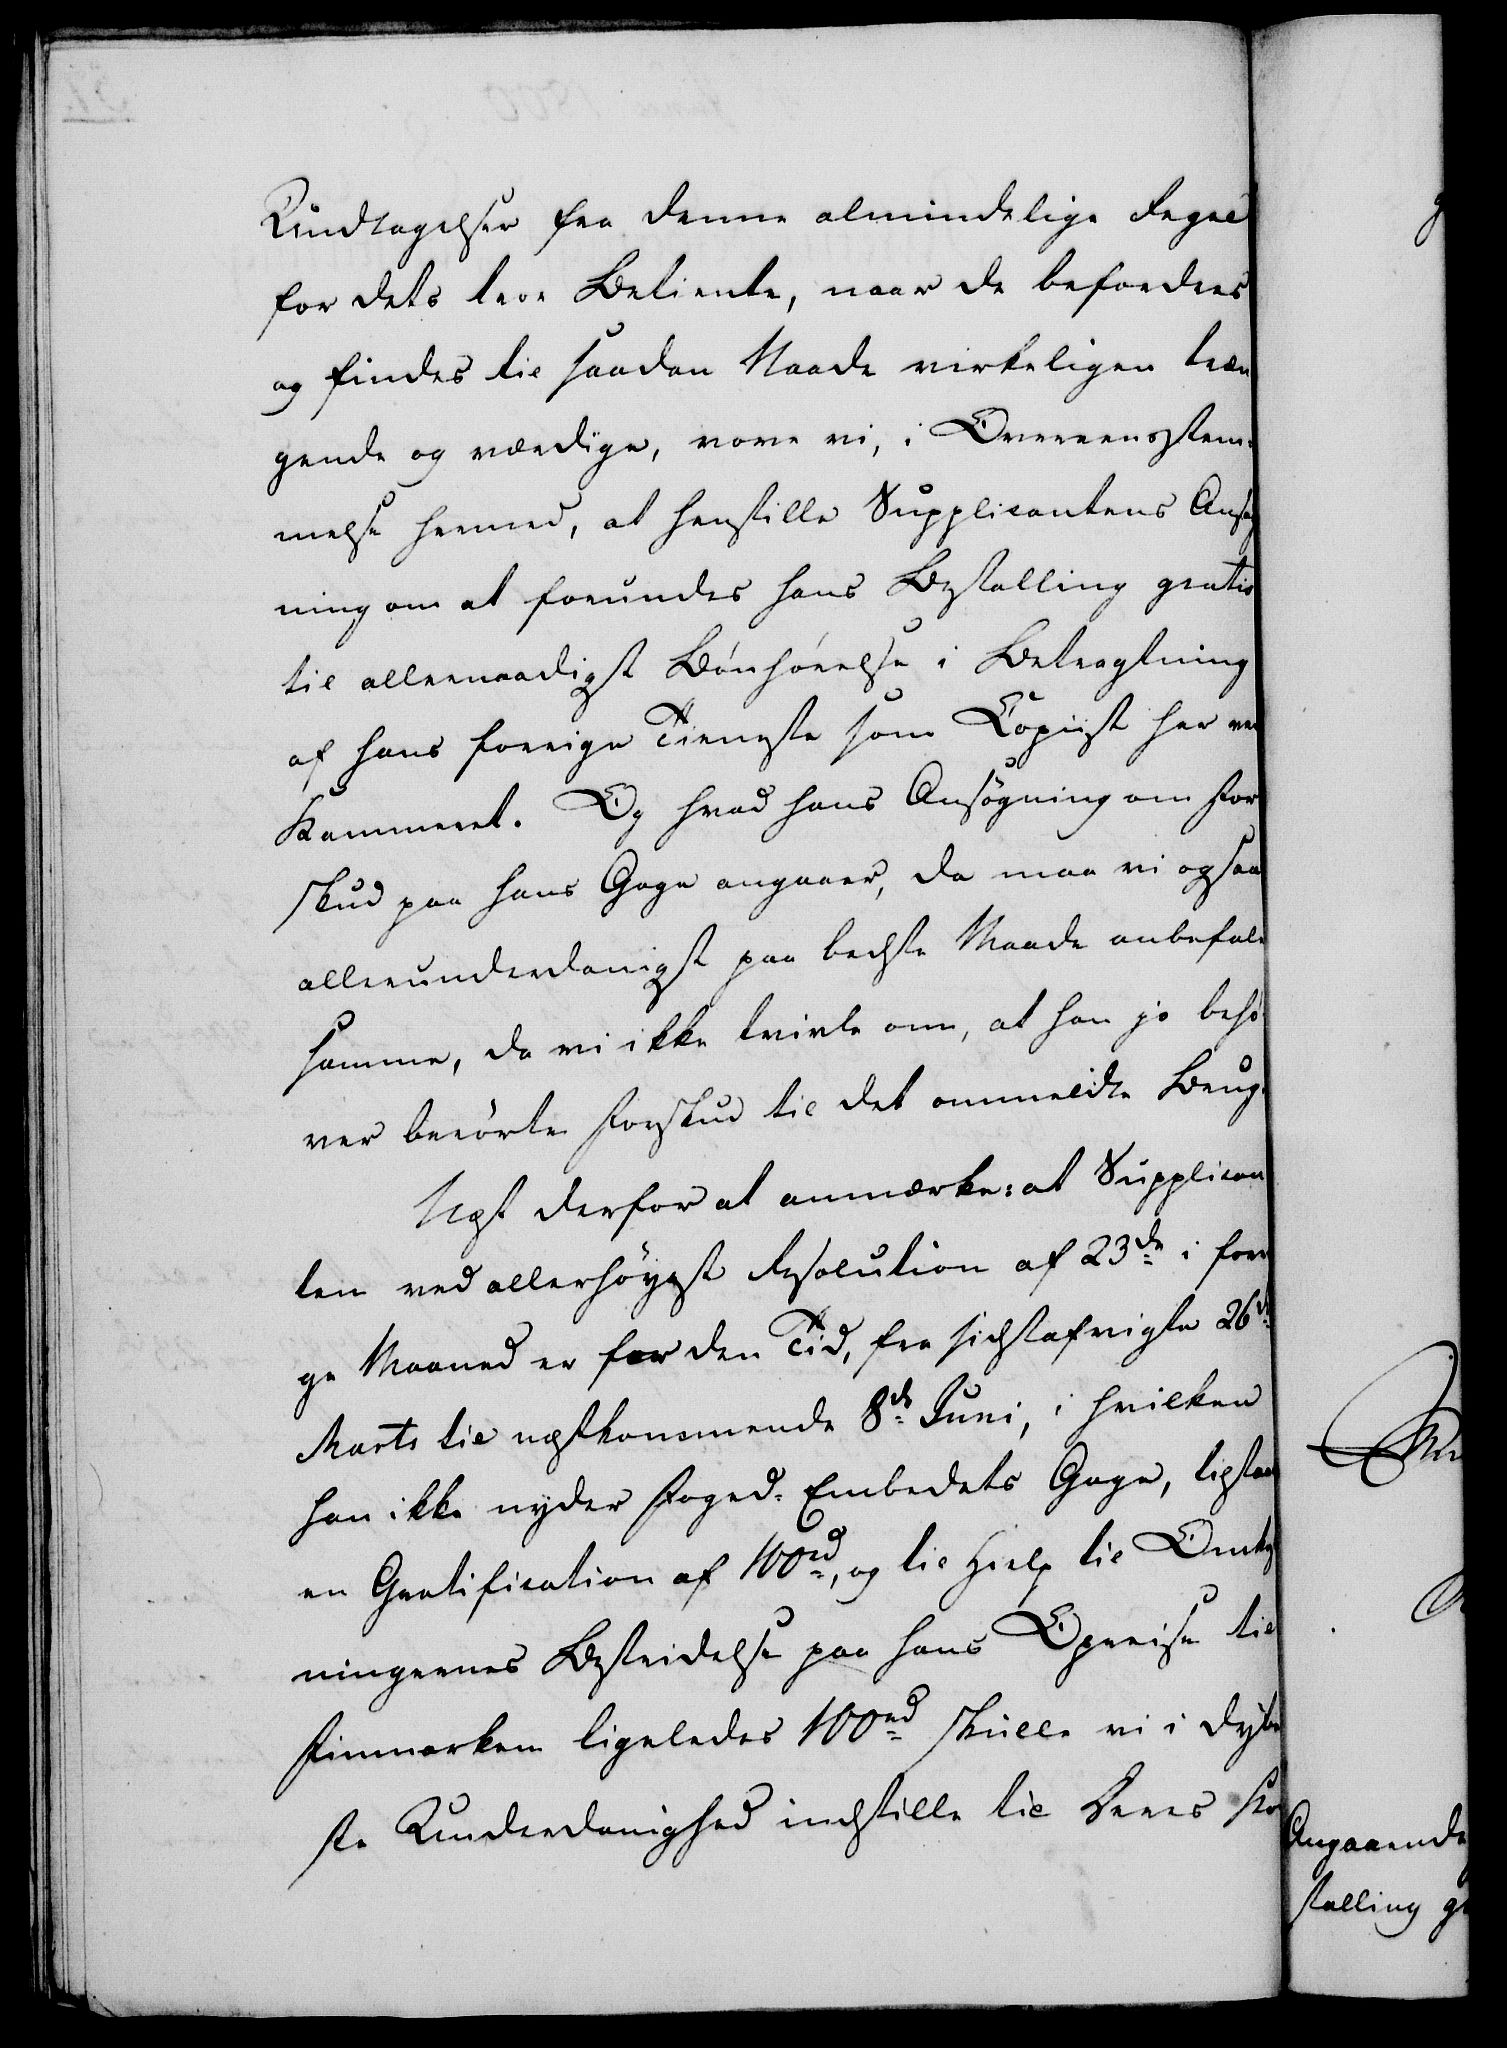 Undtagelser fra denne almindelige Regel
for dets troe Betiente, naar de befordres
og findes til saadan Naade virkeligen træn
gende og værdige, vove vi, i Overeensstem-
melse hermed, at henstille Supplicantens Ansøg
ning om at forundes hans Bestalling gratis
til allernaadigst Bönhörelse i Betragtning
af hans forrige Tieneste som Copiist her ved
Kammeret. Og hvad hans Ansögning om For
skud paa hans Gage angaaer, da maa vi ogsaa
allerunderdanigst paa bedste Maade anbefale
samme, da vi ikke tvivle om, at han jo behö
ver berörte Forskud til det ommeldte Brug.
Næst derfor at anmærke: at Supplican
ten ved allerhöyest Resolution af 23de i forri
ge Maaned er for den Tid, fra sidstafvigte 26de
Marts til nestkommende 8de Juni, i hvilken
han ikke nyder Foged-Embedets Gage, tilstaaet
en Gratification af 100 rd, og til Hielp til Omkost
ningernes Bestridelse paa hans Opreise til
Finmarken ligeledes 100 rd skulle vi i dybe
ste Underdanighed indstille til Deres
Angaaende
stalling